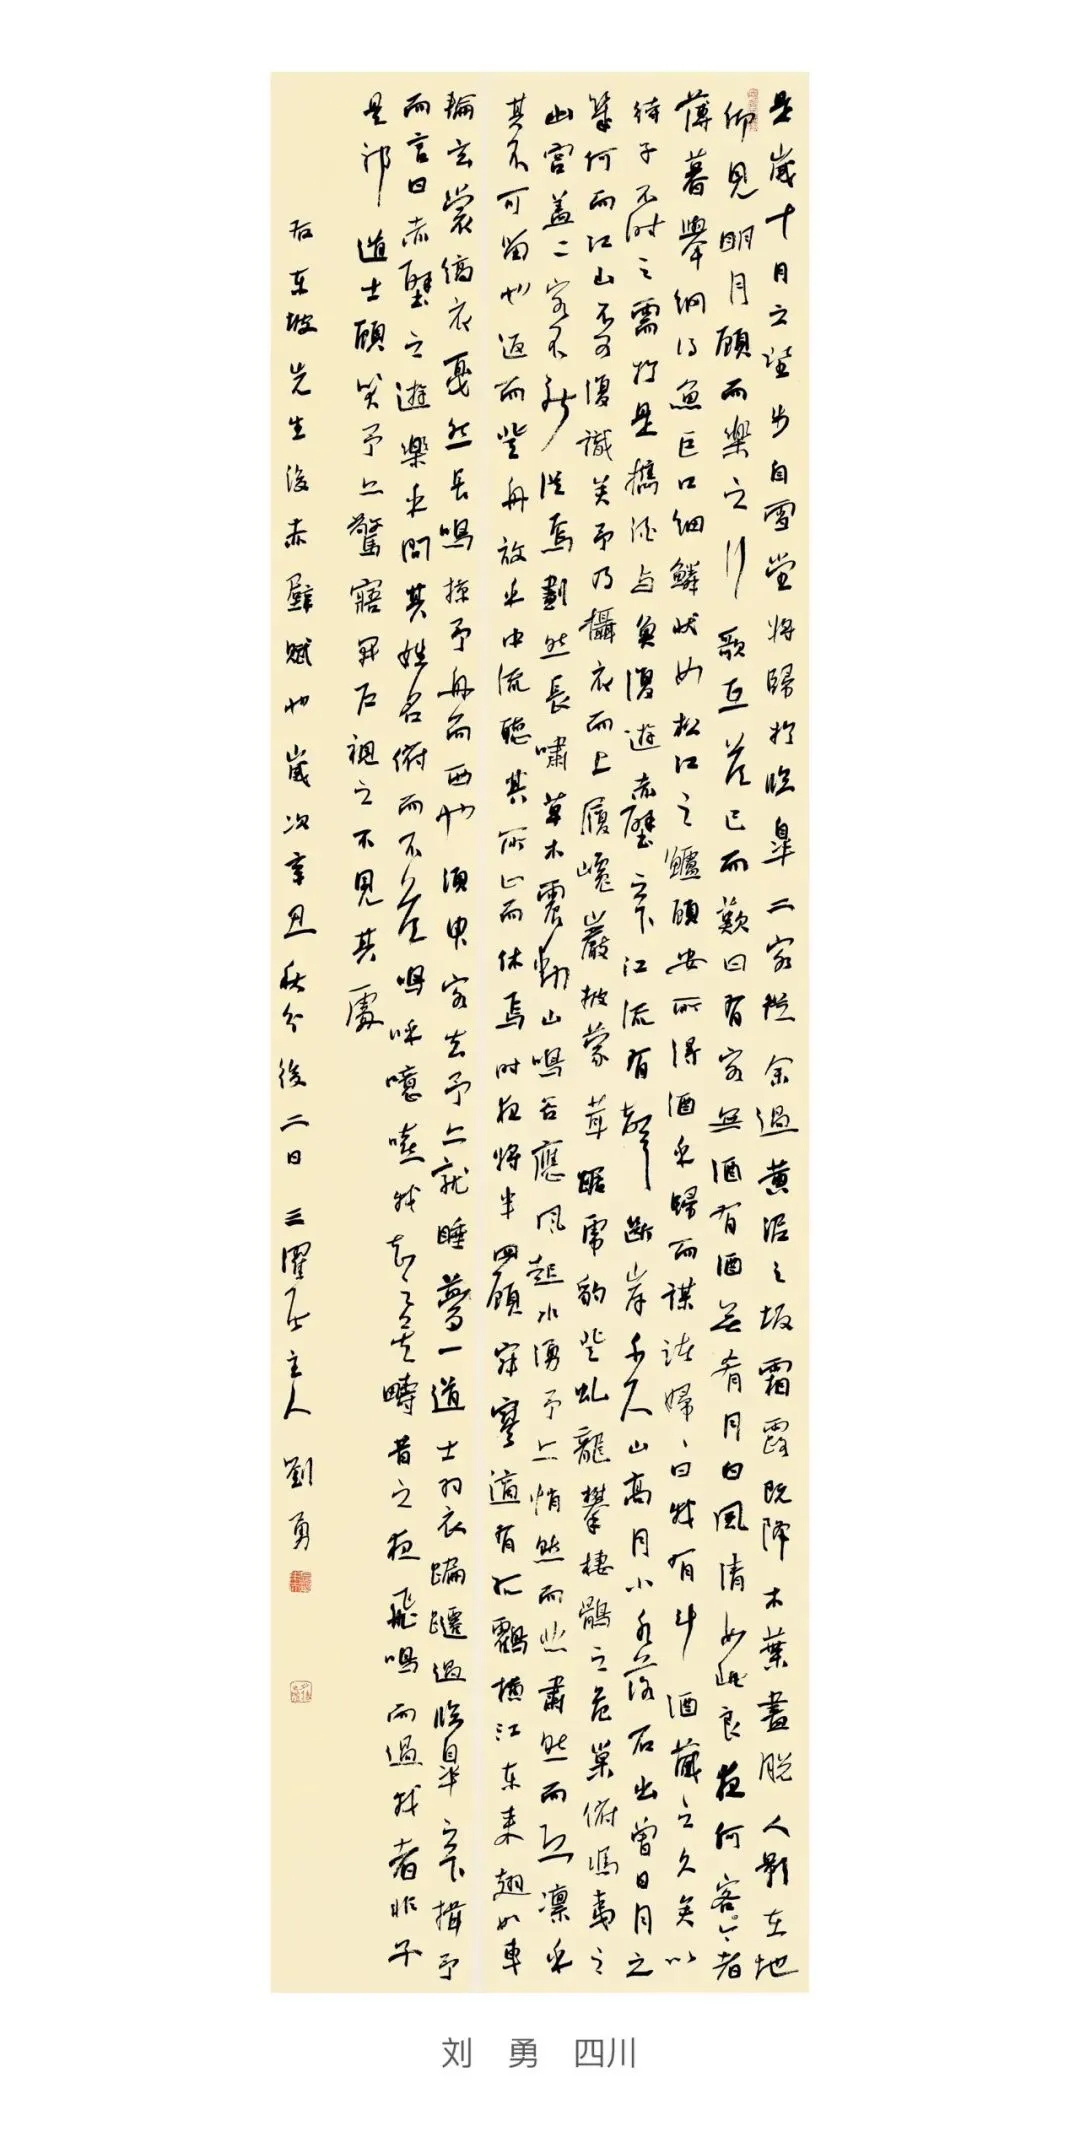 是歲十月之望步自雪堂將歸於臨皋二客從余過黃泥之坂霜露既降木葉盡脫人影在地
仰見明月顧而樂之行歌互答已而歎曰有客無酒有酒無肴月白風清如此良夜何客今者
薄暮舉網得魚巨口細鱗狀如松江之鱸顧安所得酒乎歸而謀諸婦、曰我有斗酒藏之久矣以
待子不時之需於是攜酒与魚復遊赤壁之下江流有聲斷岸千尺山高月小水落石出曾日月之
幾何而江山不可復識矣予乃攝衣而上履巉巖披蒙茸踞虎豹登虬龍攀棲鶻之危巢俯馮夷之
幽宮蓋二客不能從焉劃然長嘯草木震動山鳴谷應風起水湧予亦悄然而悲肅然而恐凜乎
其不可留也返而登舟放乎中流聽其所止而休焉時夜將半四顧寂寥適有孤鶴橫江東来翅如車
輪玄裳縞衣戛然長鳴掠予舟而西也須臾客去予亦就睡夢一道士羽衣蹁躚過臨皋之下揖予
而言曰赤壁之遊樂乎問其姓名俯而不答嗚呼噫嘻我知之矣疇昔之夜飛鳴而過我者非子
是邪道士顧笑予亦驚寤開戶視之不見其處
右東坡先生後赤壁賦也歲次辛丑秋分後二日三居主人劉勇
刘 勇 四川